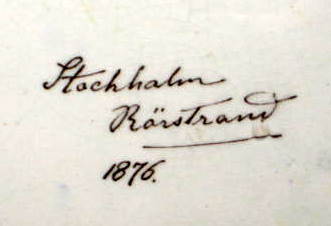 Stockholm
Rörstrand
1876.